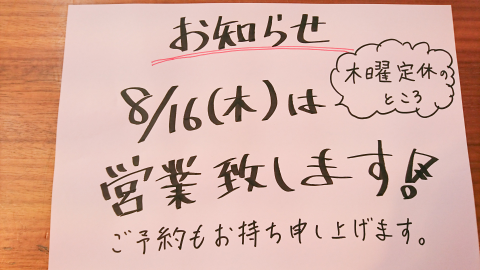 お知らせ
木曜定休の
ところ
8/16(木)は
営業致します!
ご予約もお持ち申し上げます。